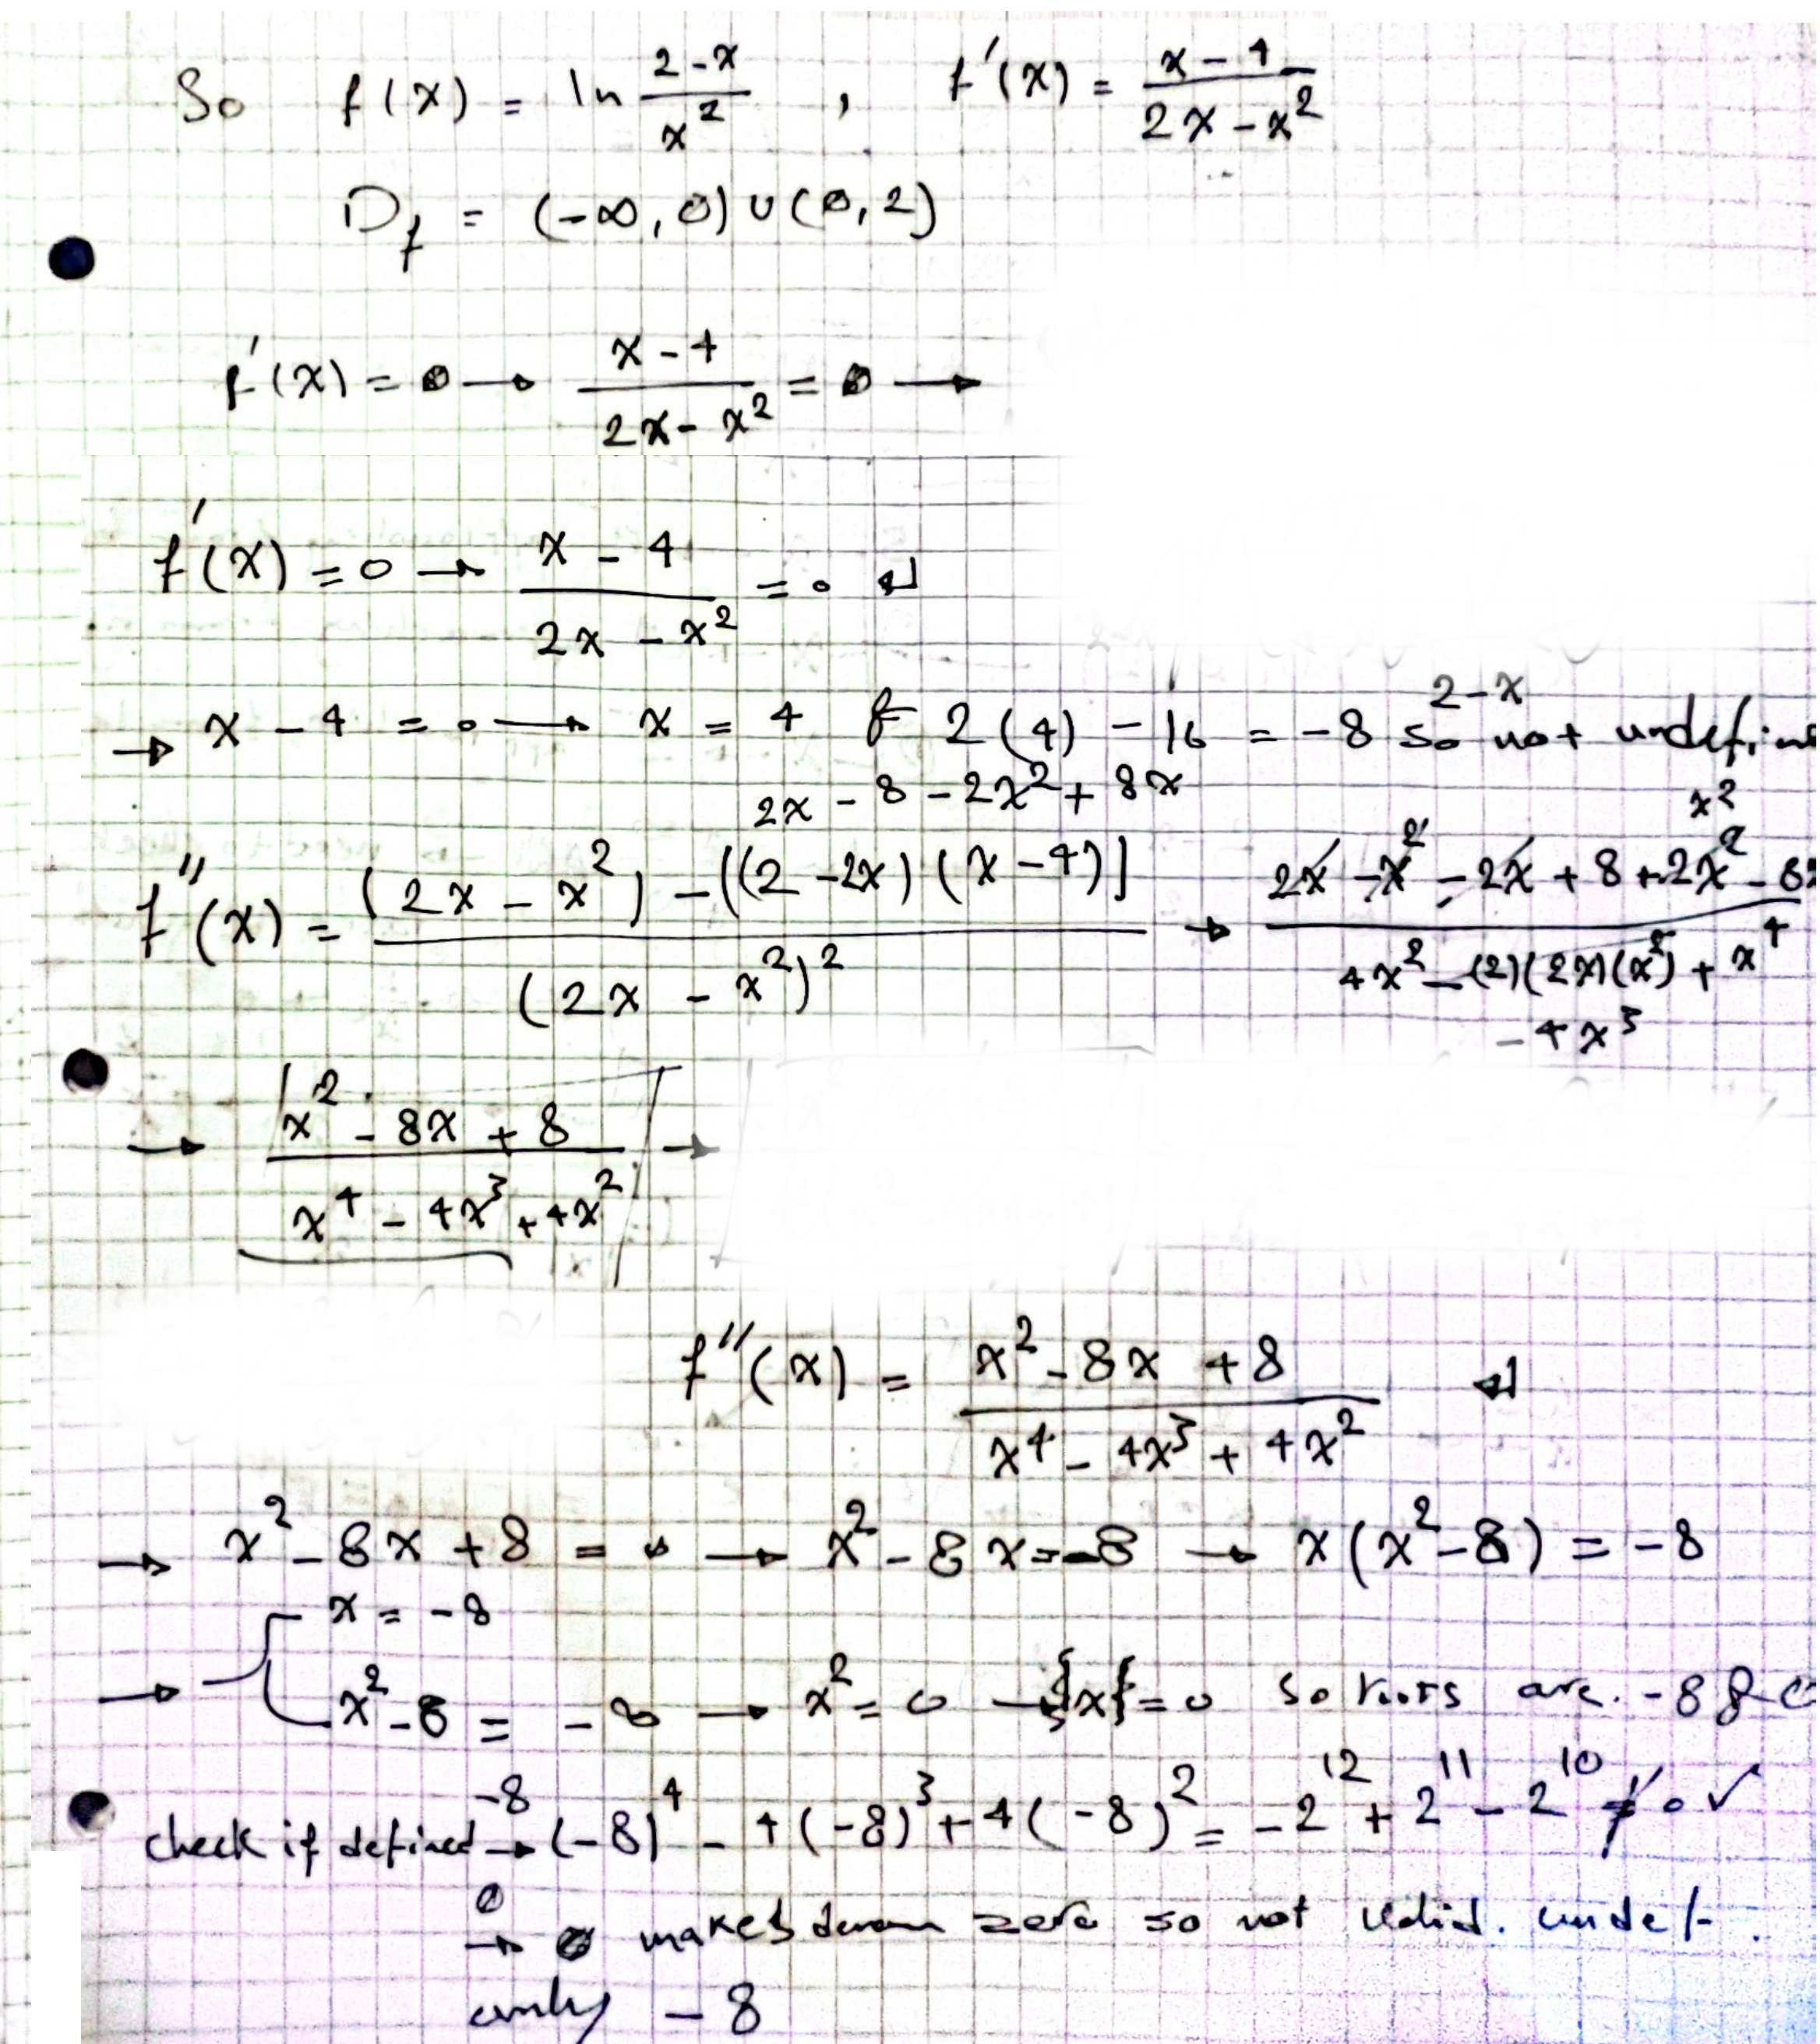 So f(x) = ln (2-x)/x² , f'(x) = (x-4)/(2x-x²)
D_f = (-∞, 0) ∪ (0, 2)
f'(x) = 0 → (x-4)/(2x-x²) = 0 →
f'(x) = 0 → (x-4)/(2x-x²) = 0 ↵
2-x
→ x - 4 = 0 → x = 4 & 2(4) - 16 = -8 so not undefine
2x - 8 - 2x² + 8x
x²
f''(x) = ((2x - x²) - ((2-2x)(x-4)])/(2x - x²)² → (2x - x² - 2x + 8 + 2x² - 8x)/(4x² - (2)(2x)(x²) + x⁴)
-4x³
→ (x² - 8x + 8)/(x⁴ - 4x³ + 4x²) →
f''(x) = (x² - 8x + 8)/(x⁴ - 4x³ + 4x²) ↵
→ x² - 8x + 8 = 0 → x² - 8x = -8 → x(x² - 8) = -8
x = -8
→ x² - 8 = -8 → x² = 0 → {x} = 0 so roots are. -8 & 0
check if defined -8 → (-8)⁴ - 4(-8)³ + 4(-8)² = -2¹² + 2¹¹ - 2¹⁰ ≠ 0 ✓
0 → 0 makes denom zero so not valid. undef.
only -8